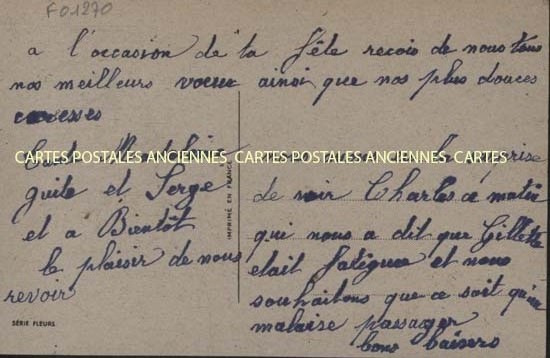 FO1270
a l'occasion de ta fête recois de nous tous
nos meilleurs voeux ainsi que nos plus douces
caresses
guite et Serge
et a Bientôt
le plaisir de nous
revoir
CARTES POSTALES ANCIENNES CARTES POSTALES ANCIENNES CARTES
IMPRIMÉ EN FRANCE
surprise
de voir Charles ce matin
qui nous a dit que Gillette
etait fatiguee et nous
souhaitons que ce soit qu'un
malaise passager
bons baisers
SÉRIE FLEURS